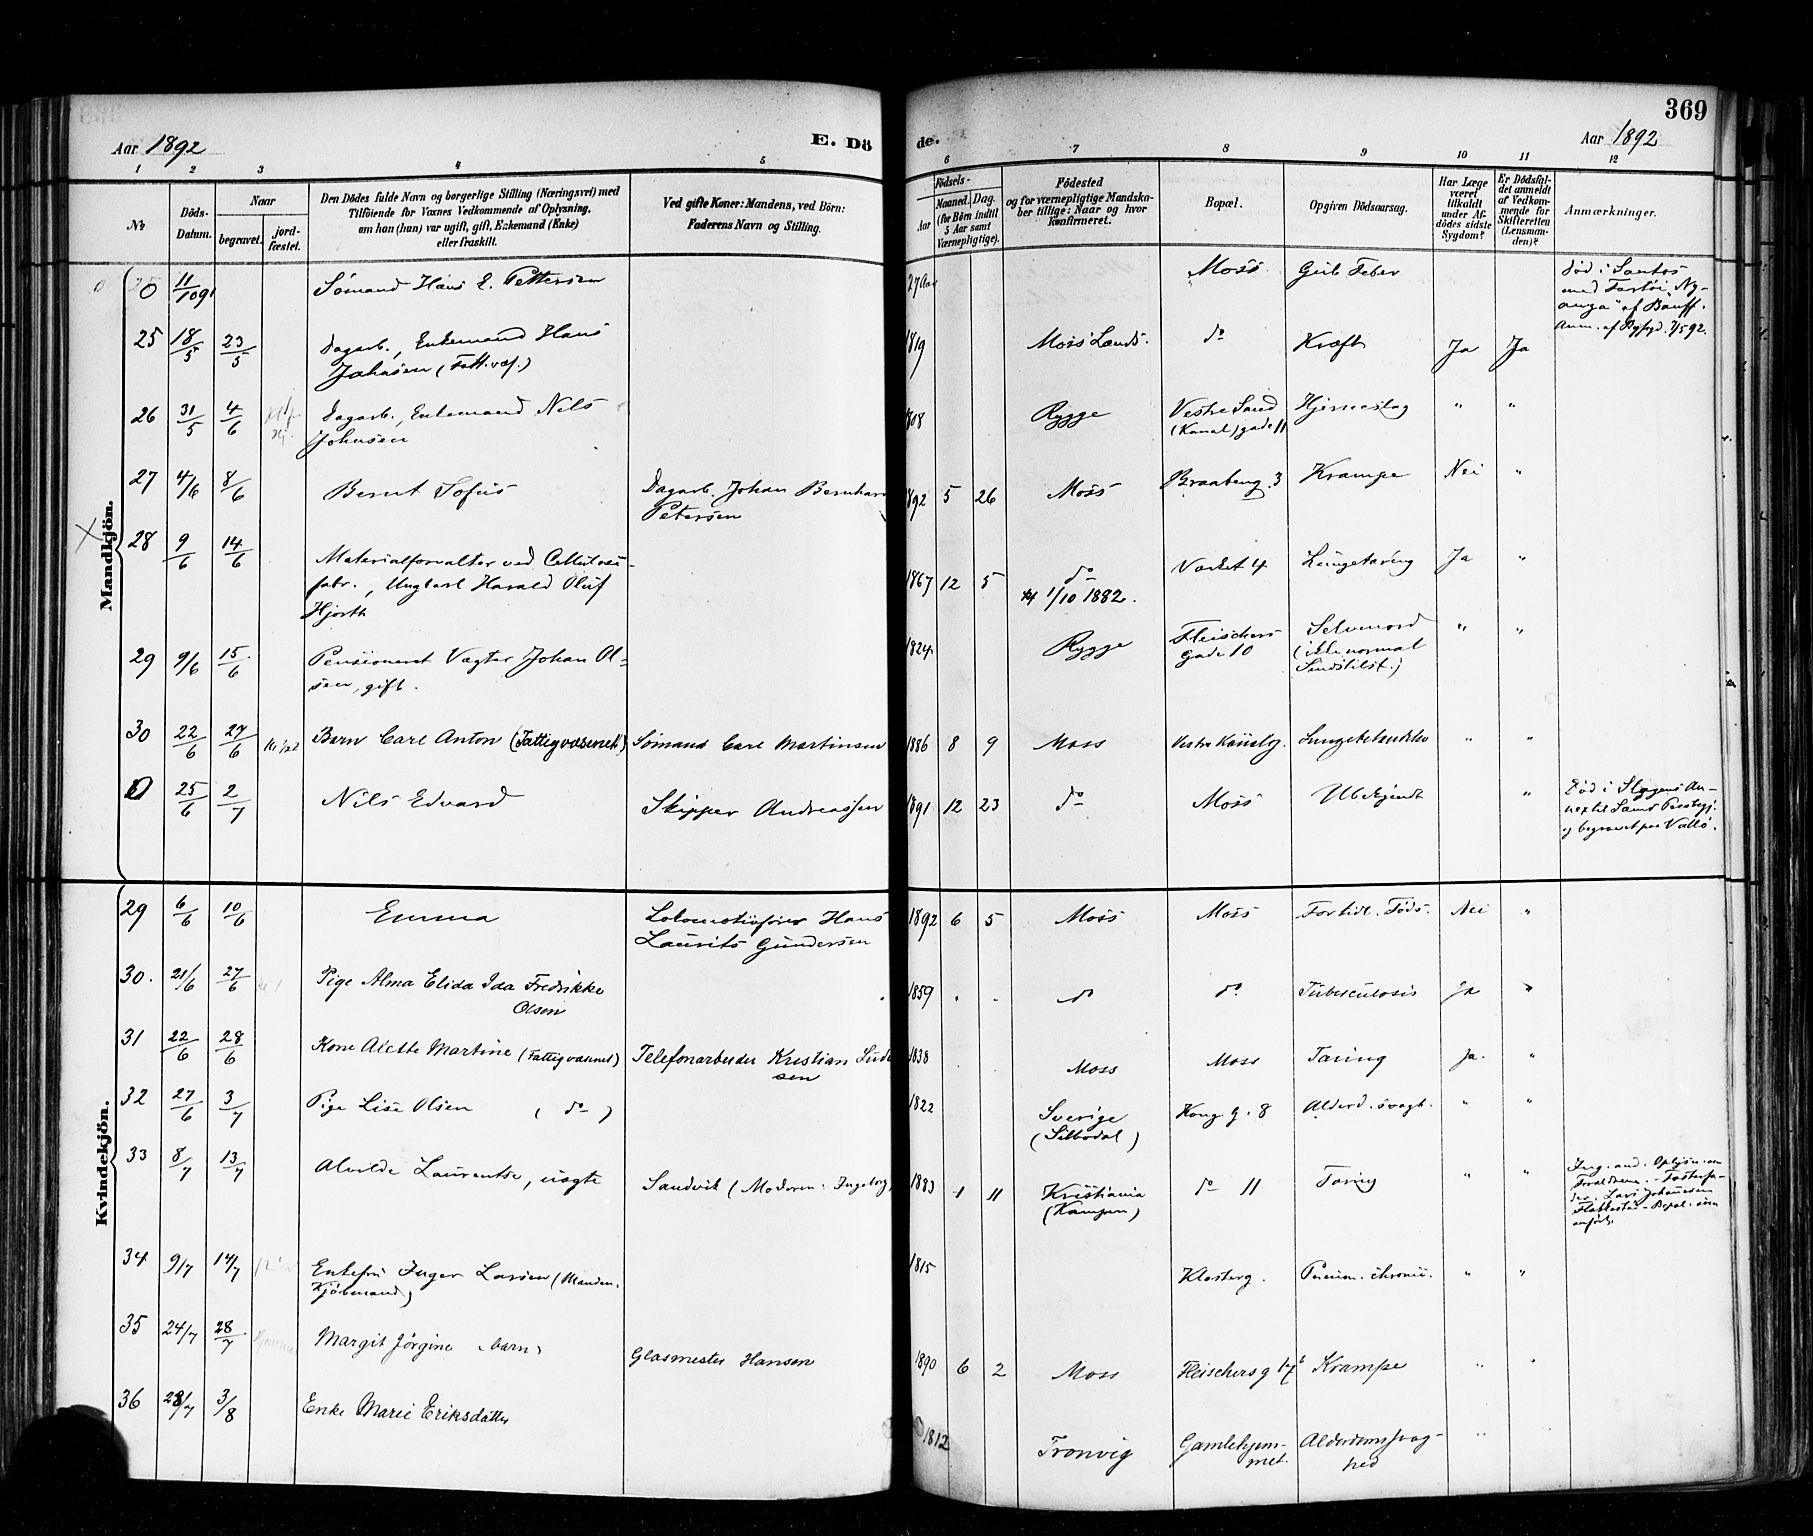 369
Aar 1892
E. Dö
de.
Aar 1892
1 2 3 4 5
6 7 8 9 10 11 12
No
Döds-
Datum.
Naar
begravet.
jord-
fæstet.
Den Dödes fulde Navn og borgerlige Stilling (Næringsvei) med
Tilföiende for Voxnes Vedkommende af Oplysning,
om han (hun) var ugift, gift, Enkemand (Enke)
eller fraskilt.
Ved gifte Koner: Mandens, ved Börn:
Faderens Navn og Stilling.
Födsels-
Aar
Maaned. Dag.
(for Börn indtil
5 Aar samt
Værnepligtige).
Födested
og for værnepligtige Mandska-
ber tillige: Naar og hvor
konfirmeret.
Bopæl.
Opgiven Dödsaarsag.
Har Læge
været
tilkaldt
under Af-
dödes sidste
Sygdom?
Er Dödsfal-
det anmeldt
af Vedkom-
mende for
Skifteretten
(Lensman-
den)?
Anmærkninger.
Mandkjön.
0 11/10 91 Sömand Hans E. Pettersen 27 Aar Moss Gul Feber
död i Santos
med Fartöi
af Banff.
25 18/5 23/5 Dagarb., Enkemand Hans
Johnsen (Fatt.væs.) 1819 Moss Lands. do Kræft Ja Ja
26 31/5 4/6 Dagarb., Enkemand Nils
Johnsen 1808 Rygge Vestre Sund
(Kanal) gade 11 Hjerneslag " "
27 4/6 8/6 Bernt Sofus Dagarb. Johan Bernhard
Petersen 1892 5 26 Moss Braateng. 3 Krampe Nei "
28 9/6 14/6 Materialforvalter ved Cellulose-
fabr., Ungkarl Harald Oluf
Hjorth 1867 12 5 do
1/10 1882. Værket 4 Lungetæring Ja "
29 9/6 15/6 Pensioneret Vægter Johan Ol-
sen, gift. 1824. Rygge Fleischers
gade 10 Selvmord
(ikke normal
Sindstilst.) " "
30 22/6 27/6 Barn Carl Anton (Fattigvæsenet) Sömand Carl Martinsen 1886 8 9 Moss Vestre Kanalg. Lungebetændelse " "
0 25/6 2/7 Nils Edvard Skipper Andreassen 1891 12 23 do Moss Ubekjendt "
Död i Slagens An-
nex til Sems Præstegj.
og begravet paa Vallö.
Kvindekjön.
29 6/6 10/6 Emma Lokomotivförer Hans
Laurits Gundersen 1892 6 5 Moss Moss For tidl. Föds. Nei "
30. 21/6 27/6 Pige Alma Elida Ida Fredrikke
Olsen 1859 do do Tuberculosis Ja "
31 22/6 28/6 Kone Alette Martine (Fattigvæsenet) Telefonarbeider Kristian
sen 1838 Moss Moss Tæring Ja. "
32 27/6 3/7 Pige Lise Olsen (do) 1822 Sverige
(Silbodal) Kong. g. 8 Alderd. svagh. " "
33 8/7 13/7 Alvilde Laurentse, uægte Sandvik (Moderen: Ingeborg) 1883 1 11 Kristiania
(Kampen) do 11 Tæring " "
Ing. and. Oplysn. om
Forældrene. - Fosterfa-
der: Lars Johannesen
- Bopæl. som
anfört.
34 9/7 14/7 Enkefru Inger Larsen (Manden:
Kjöbmand) 1815 Klosterg. Pneum. chronic. " "
35 24/7 28/7 Margit Jörgine (barn) Glasmester Hansen 1890 6 2 Moss Fleischersg 17 b Krampe " "
36 28/7 3/8 Enke Marie Eriksdatter 1812 Tronvig Gamlehjem-
met. Alderdomssvag-
hed "